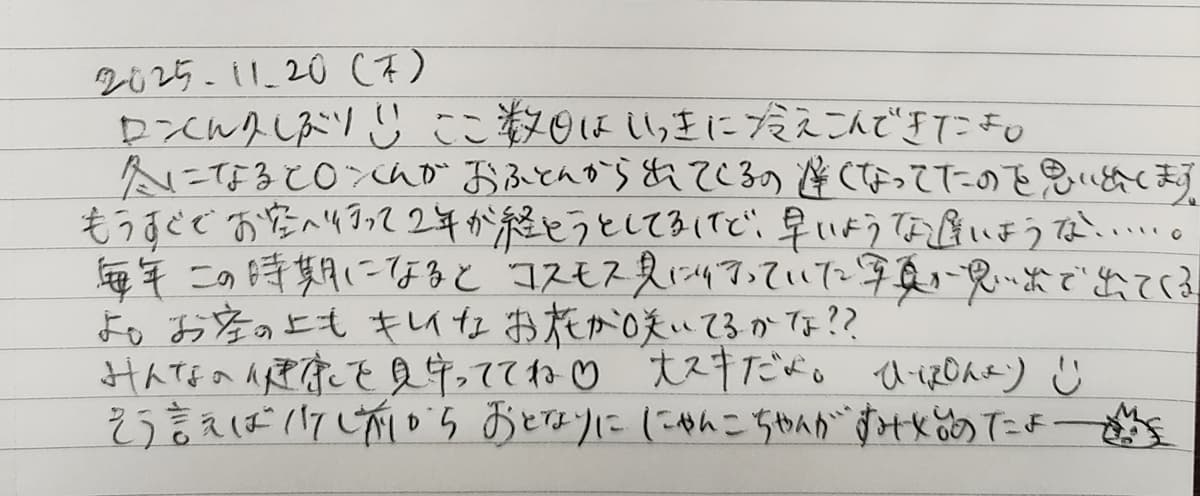 2025.11.20(木)
ロンくん久しぶり ここ数日はいっきに冷えこんできたよ。
冬になるとロンくんがおふとんから出てくるの遅くなってたのを思い出します。
もうすぐでお空へ行って2年が経とうとしてるけど、早いような遅いような……。
毎年この時期になるとコスモス見に行っていた写真が思い出で出てくる
よ。お空の上もキレイなお花が咲いてるかな??
みんなの健康を見守っててね♡ 大スキだよ。 より
そう言えば少し前からおとなりににゃんこちゃんがすみ始めたよー